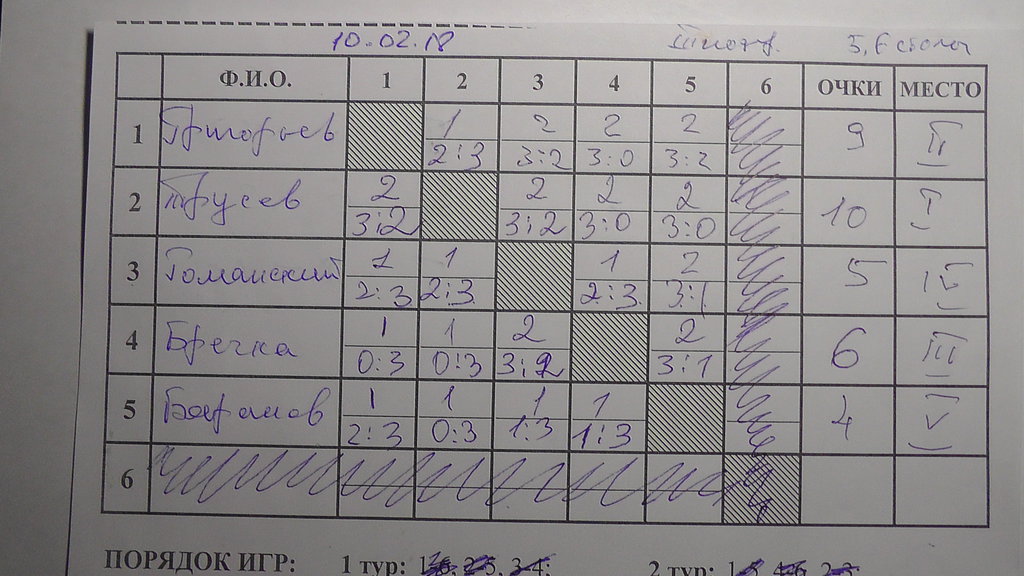 10.02.18 5,6 столы
Ф.И.О. 1 2 3 4 5 6 ОЧКИ МЕСТО
1 Григорьев 1 2 2 2 9 II
2:3 3:2 3:0 3:2
2 Трусев 2 2 2 2 10 I
3:2 3:2 3:0 3:0
3 Романский 1 1 1 2 5 IV
2:3 2:3 2:3 3:1
4 Бречка 1 1 2 2 6 III
0:3 0:3 3:2 3:1
5 Баранов 1 1 1 1 4 V
2:3 0:3 1:3 1:3
6
ПОРЯДОК ИГР: 1 тур: 2 тур: